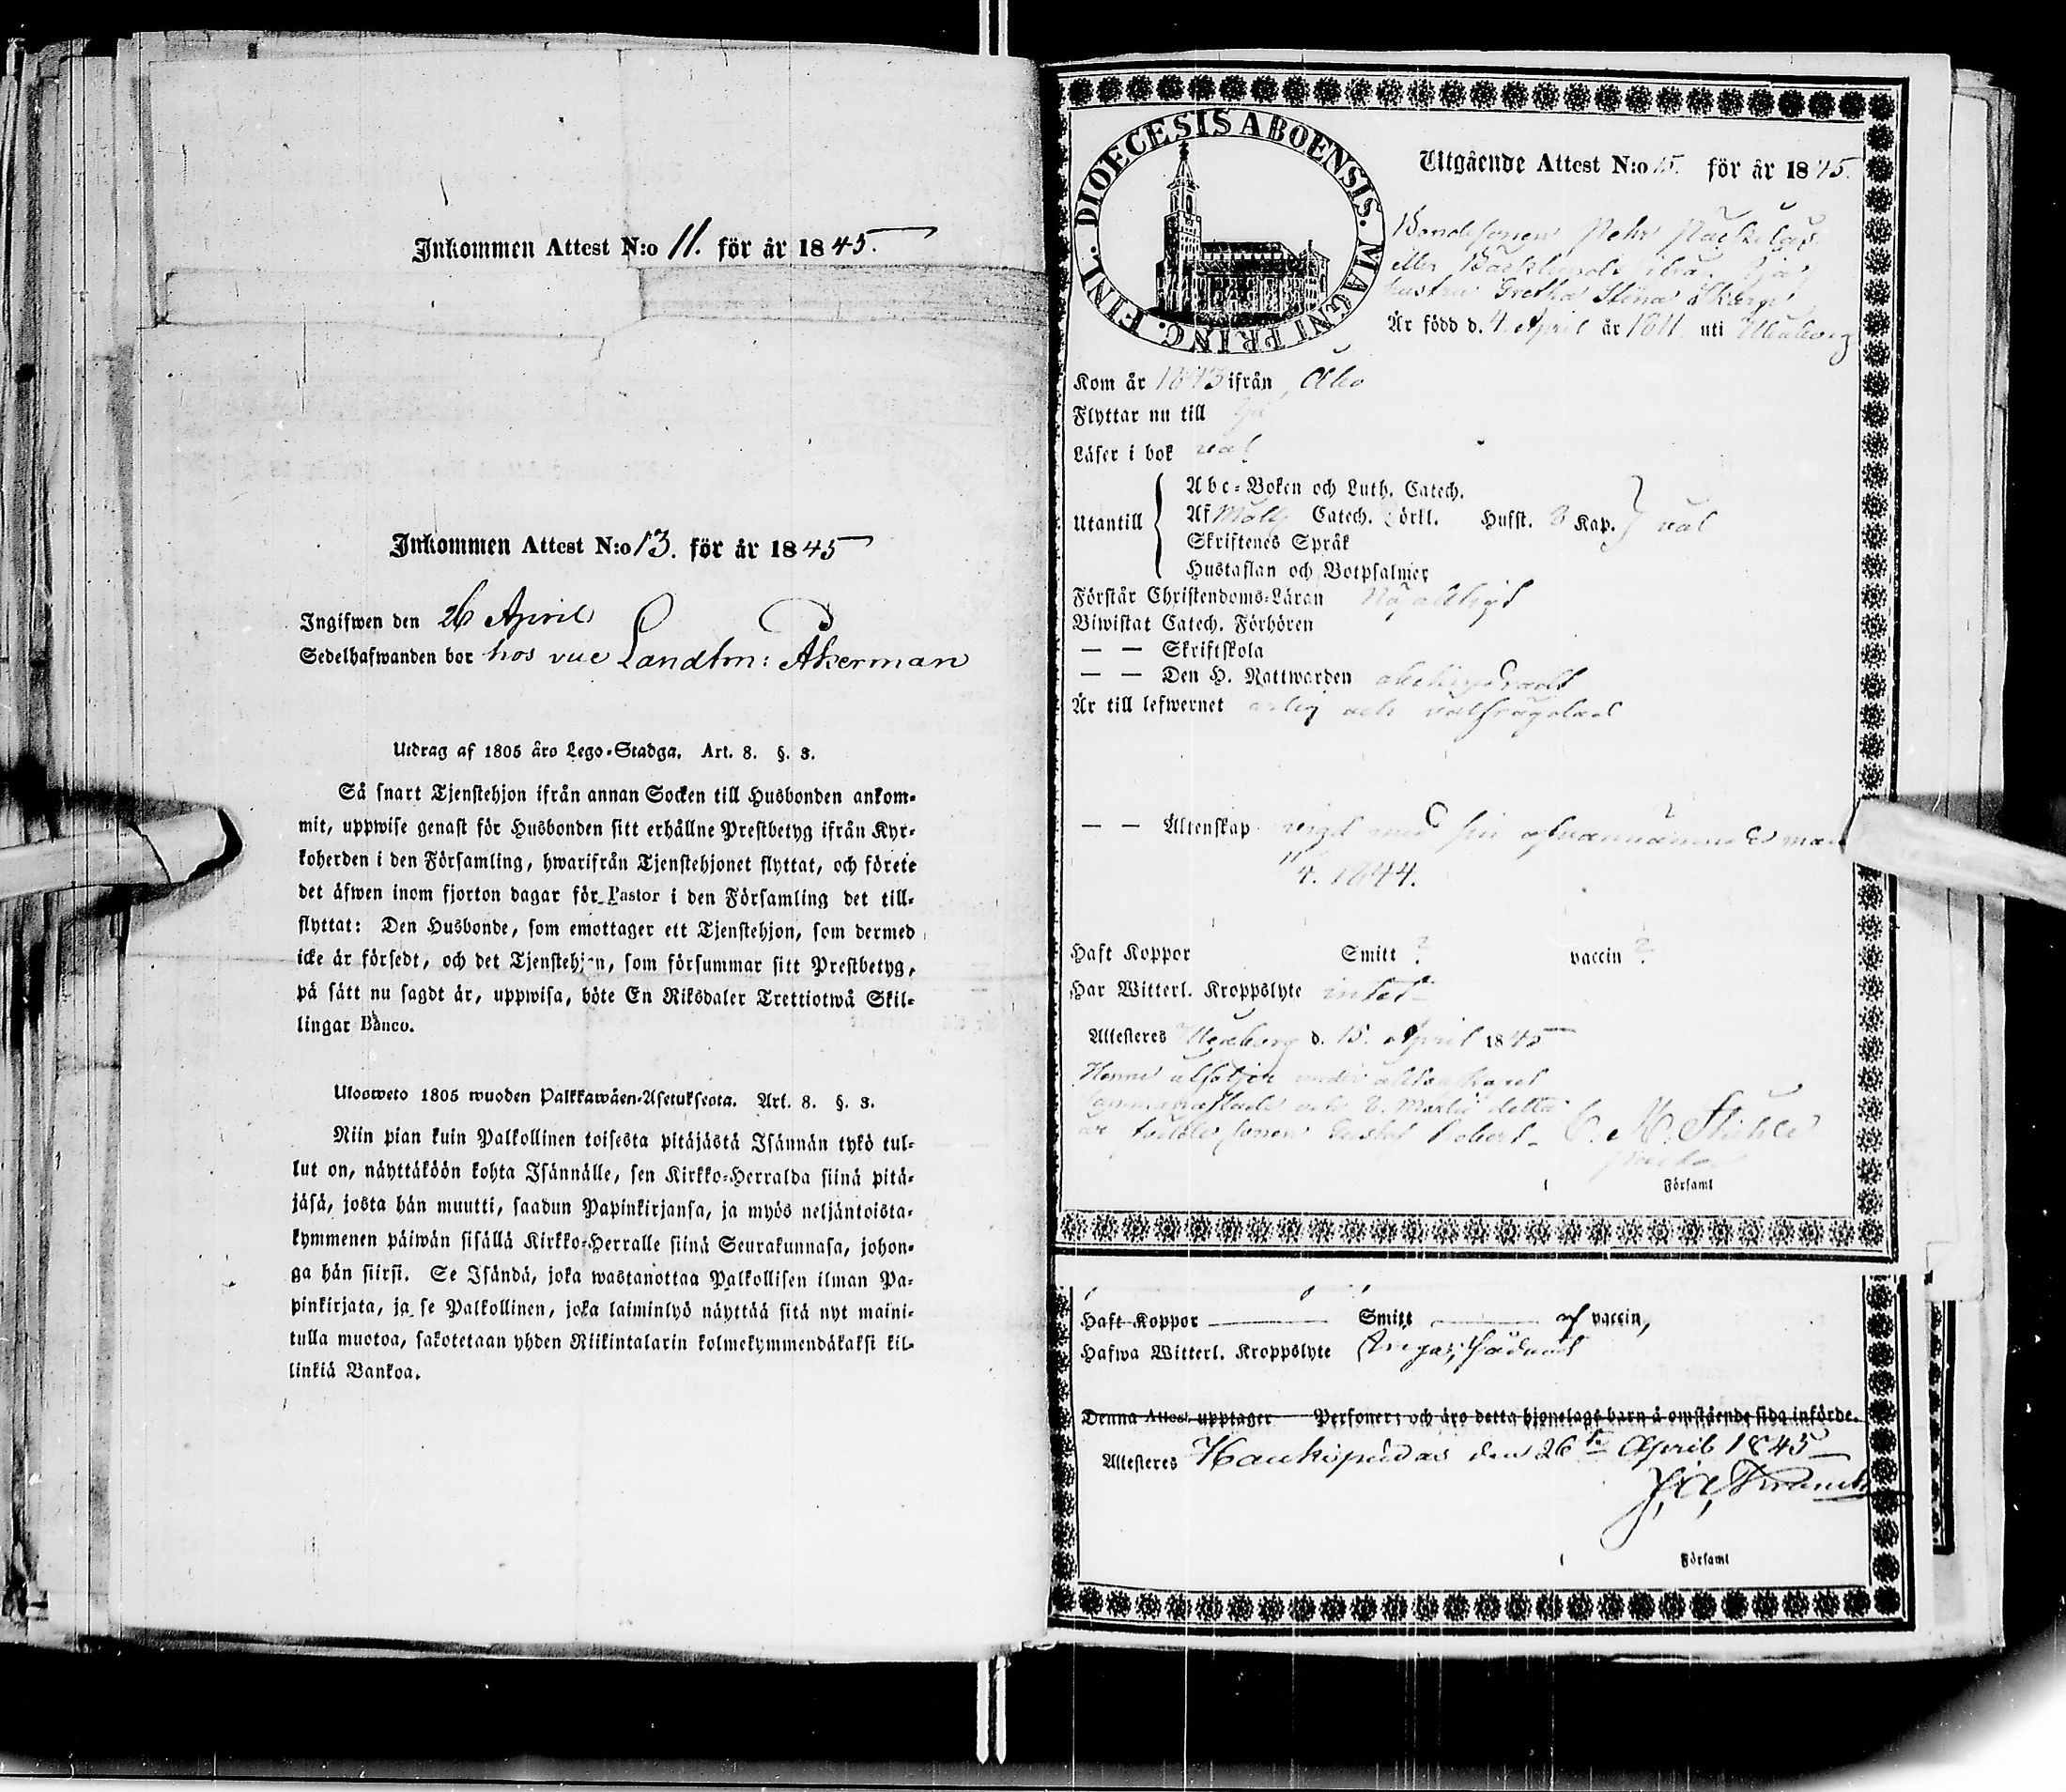 Inkommen Attest N:o 11. för år 1845.
Inkommen Attest N:o 13. för år 1845
Ingifwen den 26 April
Sedelhafwanden bor hos vice Landtm: Åkerman
Utdrag af 1805 års Lego-Stadga. Art. 8. §. 3.
Så snart Tjenstehjon ifrån annan Socken till Husbonden ankom-
mit, uppwise genast för Husbonden sitt erhållne Prestbetyg ifrån Kyr-
koherden i den Församling, hwarifrån Tjenstehjonet flyttat, och förete
det äfwen inom fjorton dagar för Pastor i den Församling det till-
flyttat: Den Husbonde, som emottager ett Tjenstehjon, som dermed
icke är försedt, och det Tjenstehjon, som försummar sitt Prestbetyg,
på sätt nu sagdt är, uppwisa, böte En Riksdaler Trettiotwå Skil-
lingar Banco.
Ulosweto 1805 wuoden Palkkawäen-Asetuksesta. Art. 8. §. 3.
Niin pian kuin Palkollinen toisesta pitäjästä Isännän tykö tul-
lut on, näyttäköön kohta Isännälle, sen Kirkko-Herralda siinä pitä-
jäsä, josta hän muutti, saadun Papinkirjansa, ja myös neljäntoista-
kymmenen päiwän sisällä Kirkko-Herralle siinä Seurakunnasa, johon-
ga hän siirsi. Se Isändä, joka wastanottaa Palkollisen ilman Pa-
pinkirjata, ja se Palkollinen, joka laiminlyö näyttää sitä nyt maini-
tulla muotoa, sakotetaan yhden Riikintalarin kolmekymmendäkaksi kil-
linkiä Bankoa.
DIOECESIS ABOENSIS. MAGNI PRINC. FINL.
Utgående Attest N:o 15. för år 1845.
Bondesonen Pehr
eller Bäcklunds ifrån Ijo
hustru Gretha Stina
Är född d. 4. April år 1811 uti Uleåborg
Kom år 1843 ifrån Åbo
Flyttar nu till Ijo
Läser i bok väl
Utantill
Abc-Boken och Luth. Catech.
Af Catech. Förkl. Husst. Kap. väl
Skriftenes Språk
Hustaflan och Botpsalmer
Förstår Christendoms-Läran
Biwistat Catech. Förhören
— — Skriftskola
— — Den H. Nattwarden
Är till lefwernet ärlig och välfrägdad
— — Äktenskap vigd med sin ofvannämnde man
11/4. 1844.
Haft Koppor Smitt ? vaccin ?
Har Witterl. Kroppslyte intet
Attesteres Uleåborg d. 15. April 1845
Henne åtföljer under äktenskapet
detta
år födde sonen Gustaf Robert. C. M.
i Församl
Haft Koppor Smitt af vaccin,
Hafwa Witterl. Kroppslyte Inga,
Denna Attest upptager Personer; och äro detta hjonelags barn å omstående sida införde.
Attesteres Haukipudas den 26te April 1845
J. A.
i Församl